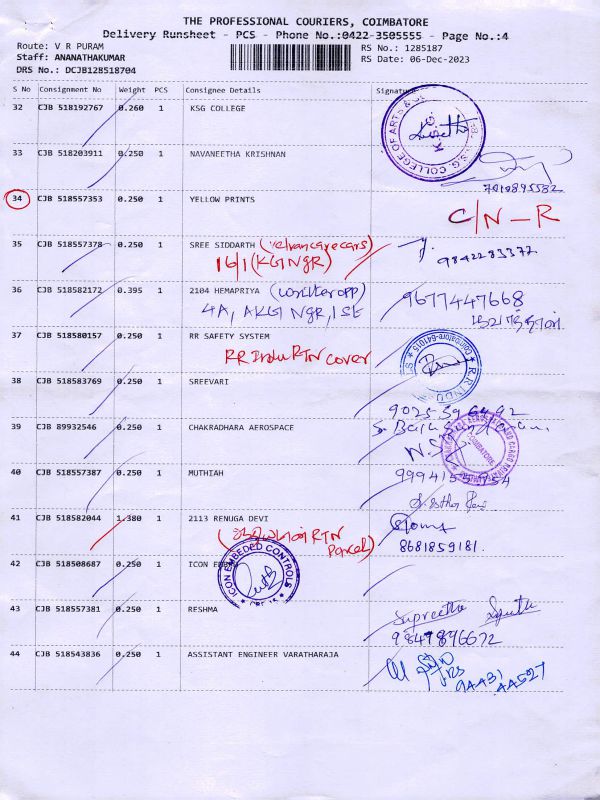 THE PROFESSIONAL COURIERS, COIMBATORE
Delivery Runsheet - PCS - Phone No.:0422-3505555 - Page No.:4
Route: V R PURAM RS No.: 1285187
Staff: ANANATHAKUMAR RS Date: 06-Dec-2023
DRS No.: DCJB128518704
S No Consignment No Weight PCS Consignee Details Signature
32 CJB 518192767 0.260 1 KSG COLLEGE
33 CJB 518203911 0.250 1 NAVANEETHA KRISHNAN
7010895582
34 CJB 518557353 0.250 1 YELLOW PRINTS
C/N - R
35 CJB 518557378 0.250 1 SREE SIDDARTH
16/1 (KG NGR) 9842283372
36 CJB 518582172 0.395 1 2104 HEMAPRIYA 9677447668
4A, AKG NGR, 1 SE
37 CJB 518580157 0.250 1 RR SAFETY SYSTEM
RR Indu RTN cover
38 CJB 518583769 0.250 1 SREEVARI
9025596492
39 CJB 89932546 0.250 1 CHAKRADHARA AEROSPACE
40 CJB 518557387 0.250 1 MUTHIAH
41 CJB 518582044 1.380 1 2113 RENUGA DEVI
RTN Parcel) 8681859181.
42 CJB 518508687 0.250 1 ICON
ICON EMBEDED CONTROLS
43 CJB 518557381 0.250 1 RESHMA Supreetha
9847896672
44 CJB 518543836 0.250 1 ASSISTANT ENGINEER VARATHARAJA
94431
44527